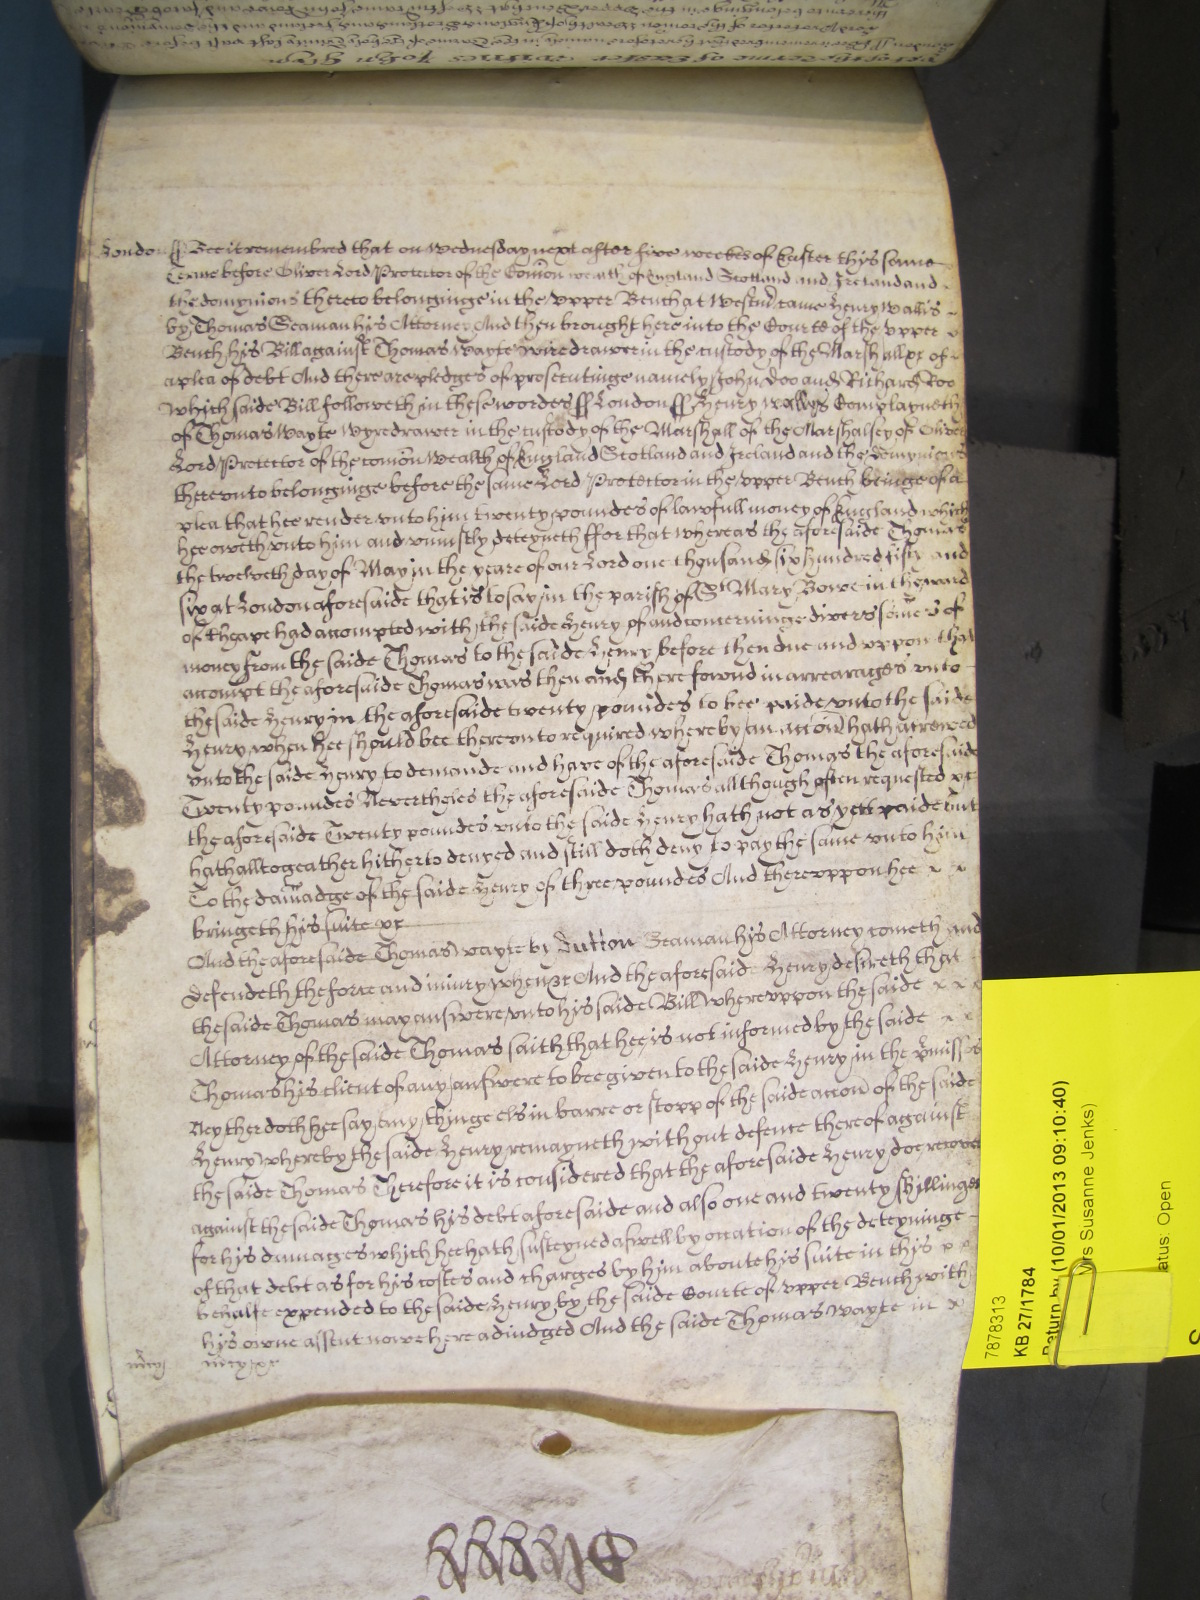 London ss Bee it remembred that on Wednesday next after five weekes of Easter this same
Terme before Oliver Lord Protector of the Comõn wealth of England Scotland and Ireland and
the dominions thereto belonginge in the upper Bench at Westm̃ came Henry Wallis
by Thomas Seaman his Attorney And then brought here into the Courte of the upper
Bench his Bill against Thomas Wayte wiredrawer in the custody of the Marshall &c of
a plea of debt And there are pledges of prosecutinge namely John Doo and Richard Roo
which saide Bill followeth in these wordes ss London ss Henry Wallys Complayneth
of Thomas Wayte Wyredrawer in the custody of the Marshall of the Marshalsey of Oliver
Lord Protector of the comõn Wealth of England Scotland and Ireland and the dominions
thereunto belonginge before the same Lord Protector in the upper Bench beinge of a
plea that hee render unto him twenty poundes of lawfull money of England which
hee oweth unto him and uniustly deteyneth ffor that whereas the aforesaide Thomas
the twelveth day of May in the yeare of our Lord one thousand six hundred fifty and
six at London aforesaide that is to say in the parish of St Mary Bowe in the ward
of Cheape had accompted with the saide Henry of and concerninge divers somes of
money from the saide Thomas to the saide Henry before then due and uppon that
accompt the aforesaide Thomas was then and there found in arrearages unto
the saide Henry in the aforesaide twenty poundes to bee paide unto the saide
Henry when hee should bee thereunto required whereby an accon̄ hath accrewed
unto the saide Henry to demande and have of the aforesaide Thomas the aforesaide
Twenty poundes Neverthelesse the aforesaide Thomas allthough often requested &c
the aforesaide Twenty poundes unto the saide Henry hath not as yett paide but
hath alltogeather hitherto denyed and still doth deny to pay the same unto him
To the dam̄adge of the saide Henry of three poundes And thereuppon hee
bringeth his suite &c
And the aforesaide Thomas Wayte by Dutton Seaman his Attorney cometh and
defendeth the force and iniury when &c And the aforesaid Henry desireth that
the saide Thomas may answere unto his saide Bill whereuppon the saide
Attorney of the saide Thomas saith that hee is not informed by the saide
Thomas his client of any answere to bee given to the saide Henry in the p̄misses
Neyther doth hee say any thinge els in barre or stopp of the saide accon̄ of the saide
Henry whereby the saide Henry remayneth without defence thereof against
the saide Thomas Therefore it is considered that the aforesaide Henry doe recover
against the saide Thomas his debt aforesaide and also one and twenty shillinges
for his damages which hee hath susteyned aswell by occation of the deteyninge
of that debt as for his costes and charges by him aboute his suite in this
behalfe expended to the saide Henry by the saide Courte of upper Bench with
his owne assent nowe here adiudged And the saide Thomas Wayte in
m̄cy m̄cy &c
7878313
KB 27/1784
Return by (10/01/2013 09:10:40)
Mrs Susanne Jenks)
atus: Open